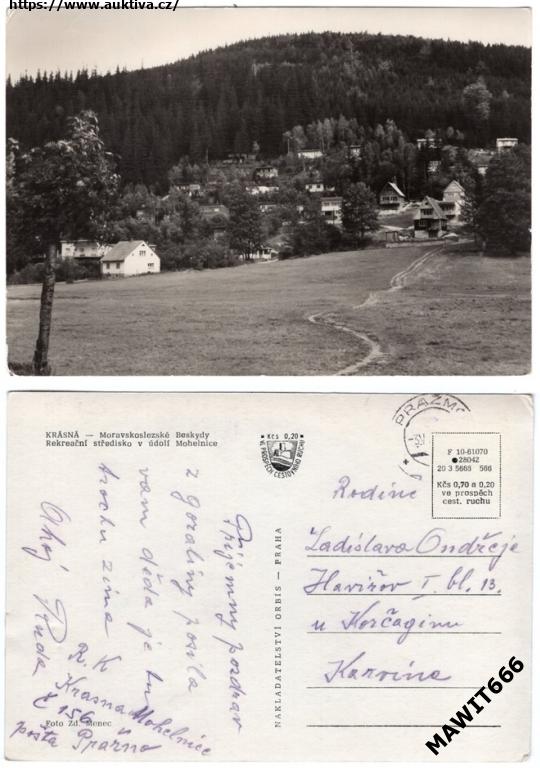 https://www.auktiva.cz/
KRÁSNÁ — Moravskoslezské Beskydy
Rekreační středisko v údolí Mohelnice
Kčs 0,20
VE PROSPĚCH CESTOVNÍHO RUCHU
PRAŽMO
F 10-61070
28042
20 3 5665 566
Kčs 0,70 a 0,20
ve prospěch
cest. ruchu
Příjemný pozdrav
z goraliny posila
vam děda je tu
trochu zima
Ahoj Ruda
R. K
Krasna Mohelnice
č 156
pošta Pražmo
Foto Zd. Menec
NAKLADATELSTVÍ ORBIS — PRAHA
Rodine
Ladislava Ondřeje
Havířov I. bl. 13.
u Korčaginu
Karvina
MAWIT666